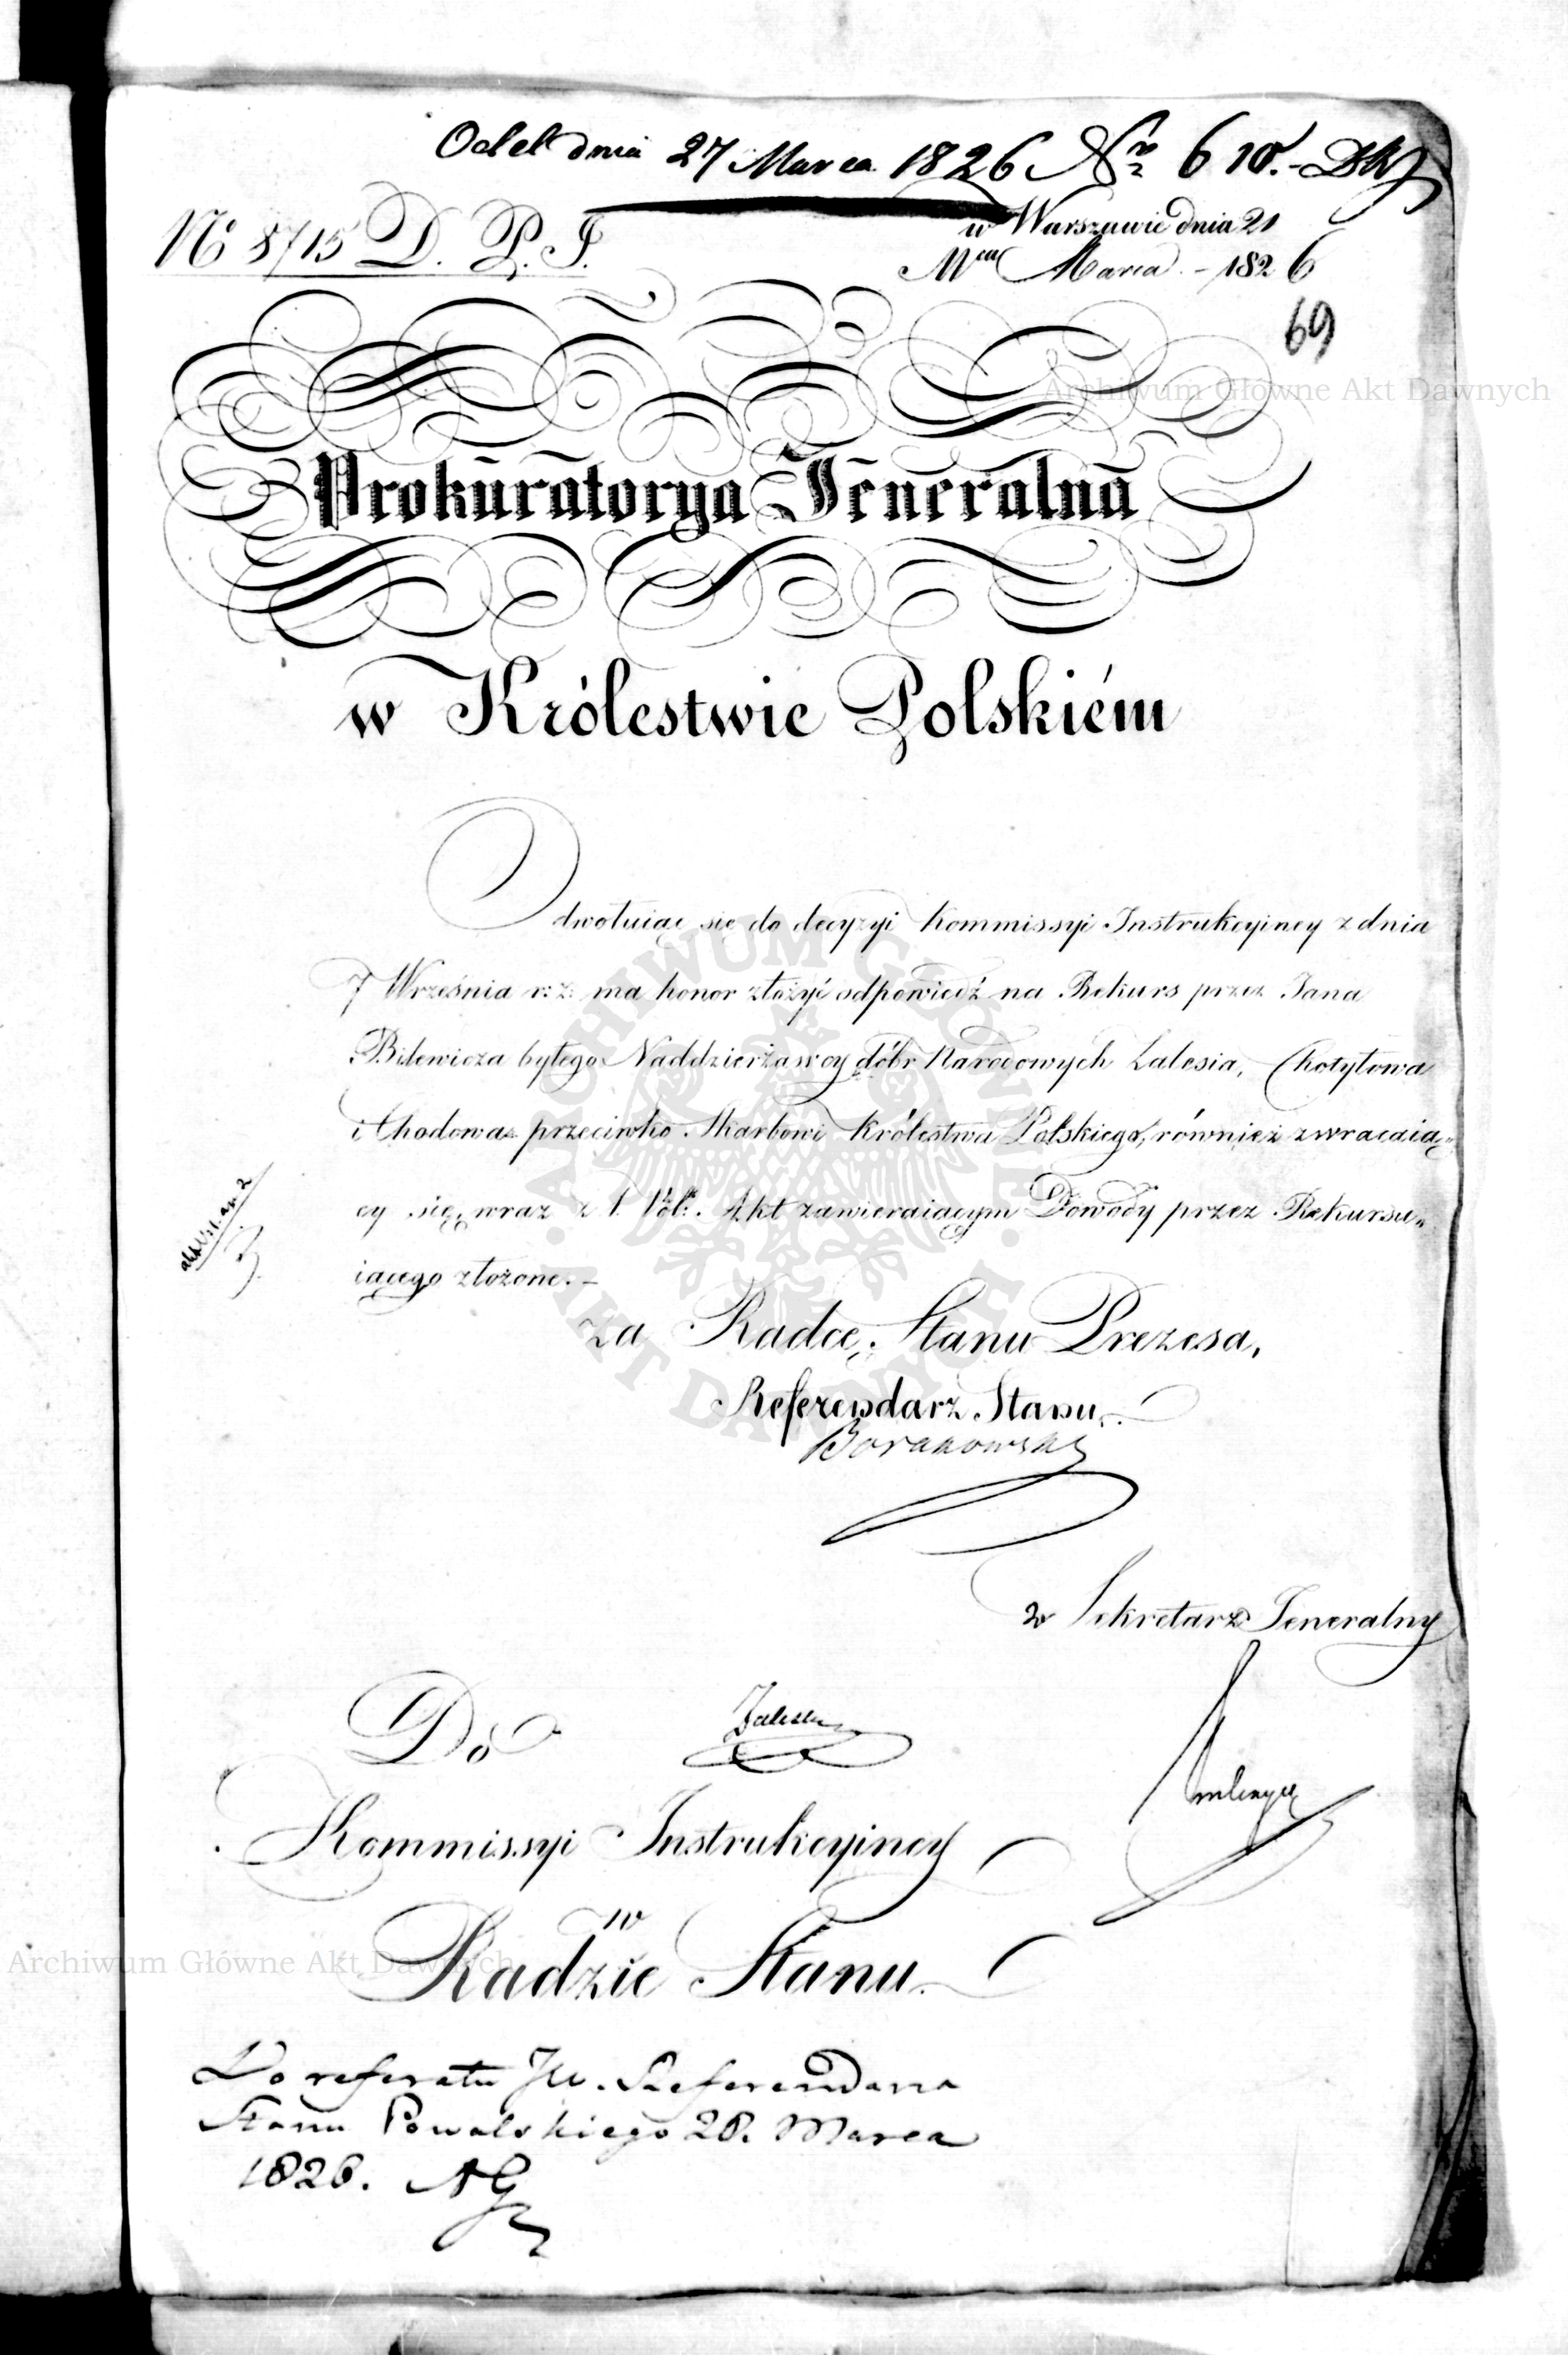 Odeb dnia 27 Marca 1826 Nro 610.
No 8715 D. P. J.
w Warszawie dnia 21
Mca Marca - 1826
69
Archiwum Główne Akt Dawnych
Prokuratorya Jeneralna
w Królestwie Polskiém
Odwołuiąc się do decyzyi Kommissyi Instrukcyiney z dnia
7 Września r: z: ma honor złożyć odpowiedź na Rekurs przez Jana
Bilewicza byłego Naddzierżawcy dóbr Narodowych Zalesia, Chotyłowa
i Chodowa przeciwko Skarbowi Królestwa Polskiego, również zwracaią„
cy się, wraz z 1. Vol: Akt zawieraiącym Dowody przez Rekursu„
iącego złożone. –
ARCHIWUM GŁÓWNE AKT DAWNYCH
za Radcę Stanu Prezesa,
Referendarz Stanu
w Sekretarz Jeneralny
Do
Kommissyi Instrukcyiney
w
Radzie Stanu.
Archiwum Główne Akt Dawnych
Do referatu JW. Referendarza
Stanu Powalskiego 28. Marca
1826.